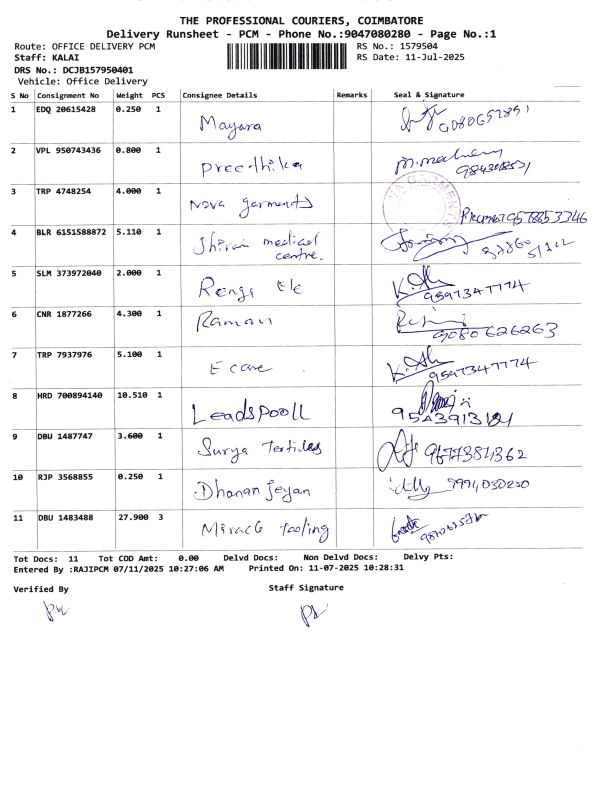 THE PROFESSIONAL COURIERS, COIMBATORE
Delivery Runsheet - PCM - Phone No.:9047080280 - Page No.:1
Route: OFFICE DELIVERY PCM RS No.: 1579504
Staff: KALAI RS Date: 11-Jul-2025
DRS No.: DCJB157950401
Vehicle: Office Delivery
S No Consignment No Weight PCS Consignee Details Remarks Seal & Signature
1 EDQ 20615428 0.250 1 Mayura
2 VPL 950743436 0.800 1 Preethika
3 TRP 4748254 4.000 1 Nova garments
4 BLR 6151588872 5.110 1 Shivani medical centre.
5 SLM 373972040 2.000 1 Renga Ele 9597347774
6 CNR 1877266 4.300 1 Raman 9080626263
7 TRP 7937976 5.100 1 E care 9597347774
8 HRD 700894140 10.510 1 Leadspooll
9 DBU 1487747 3.600 1 Surya Textiles 9677381362
10 RJP 3568855 0.250 1 Dhananjeyan 9994030250
11 DBU 1483488 27.900 3 Miracle tooling
Tot Docs: 11 Tot COD Amt: 0.00 Delvd Docs: Non Delvd Docs: Delvy Pts:
Entered By :RAJIPCM 07/11/2025 10:27:06 AM Printed On: 11-07-2025 10:28:31
Verified By Staff Signature